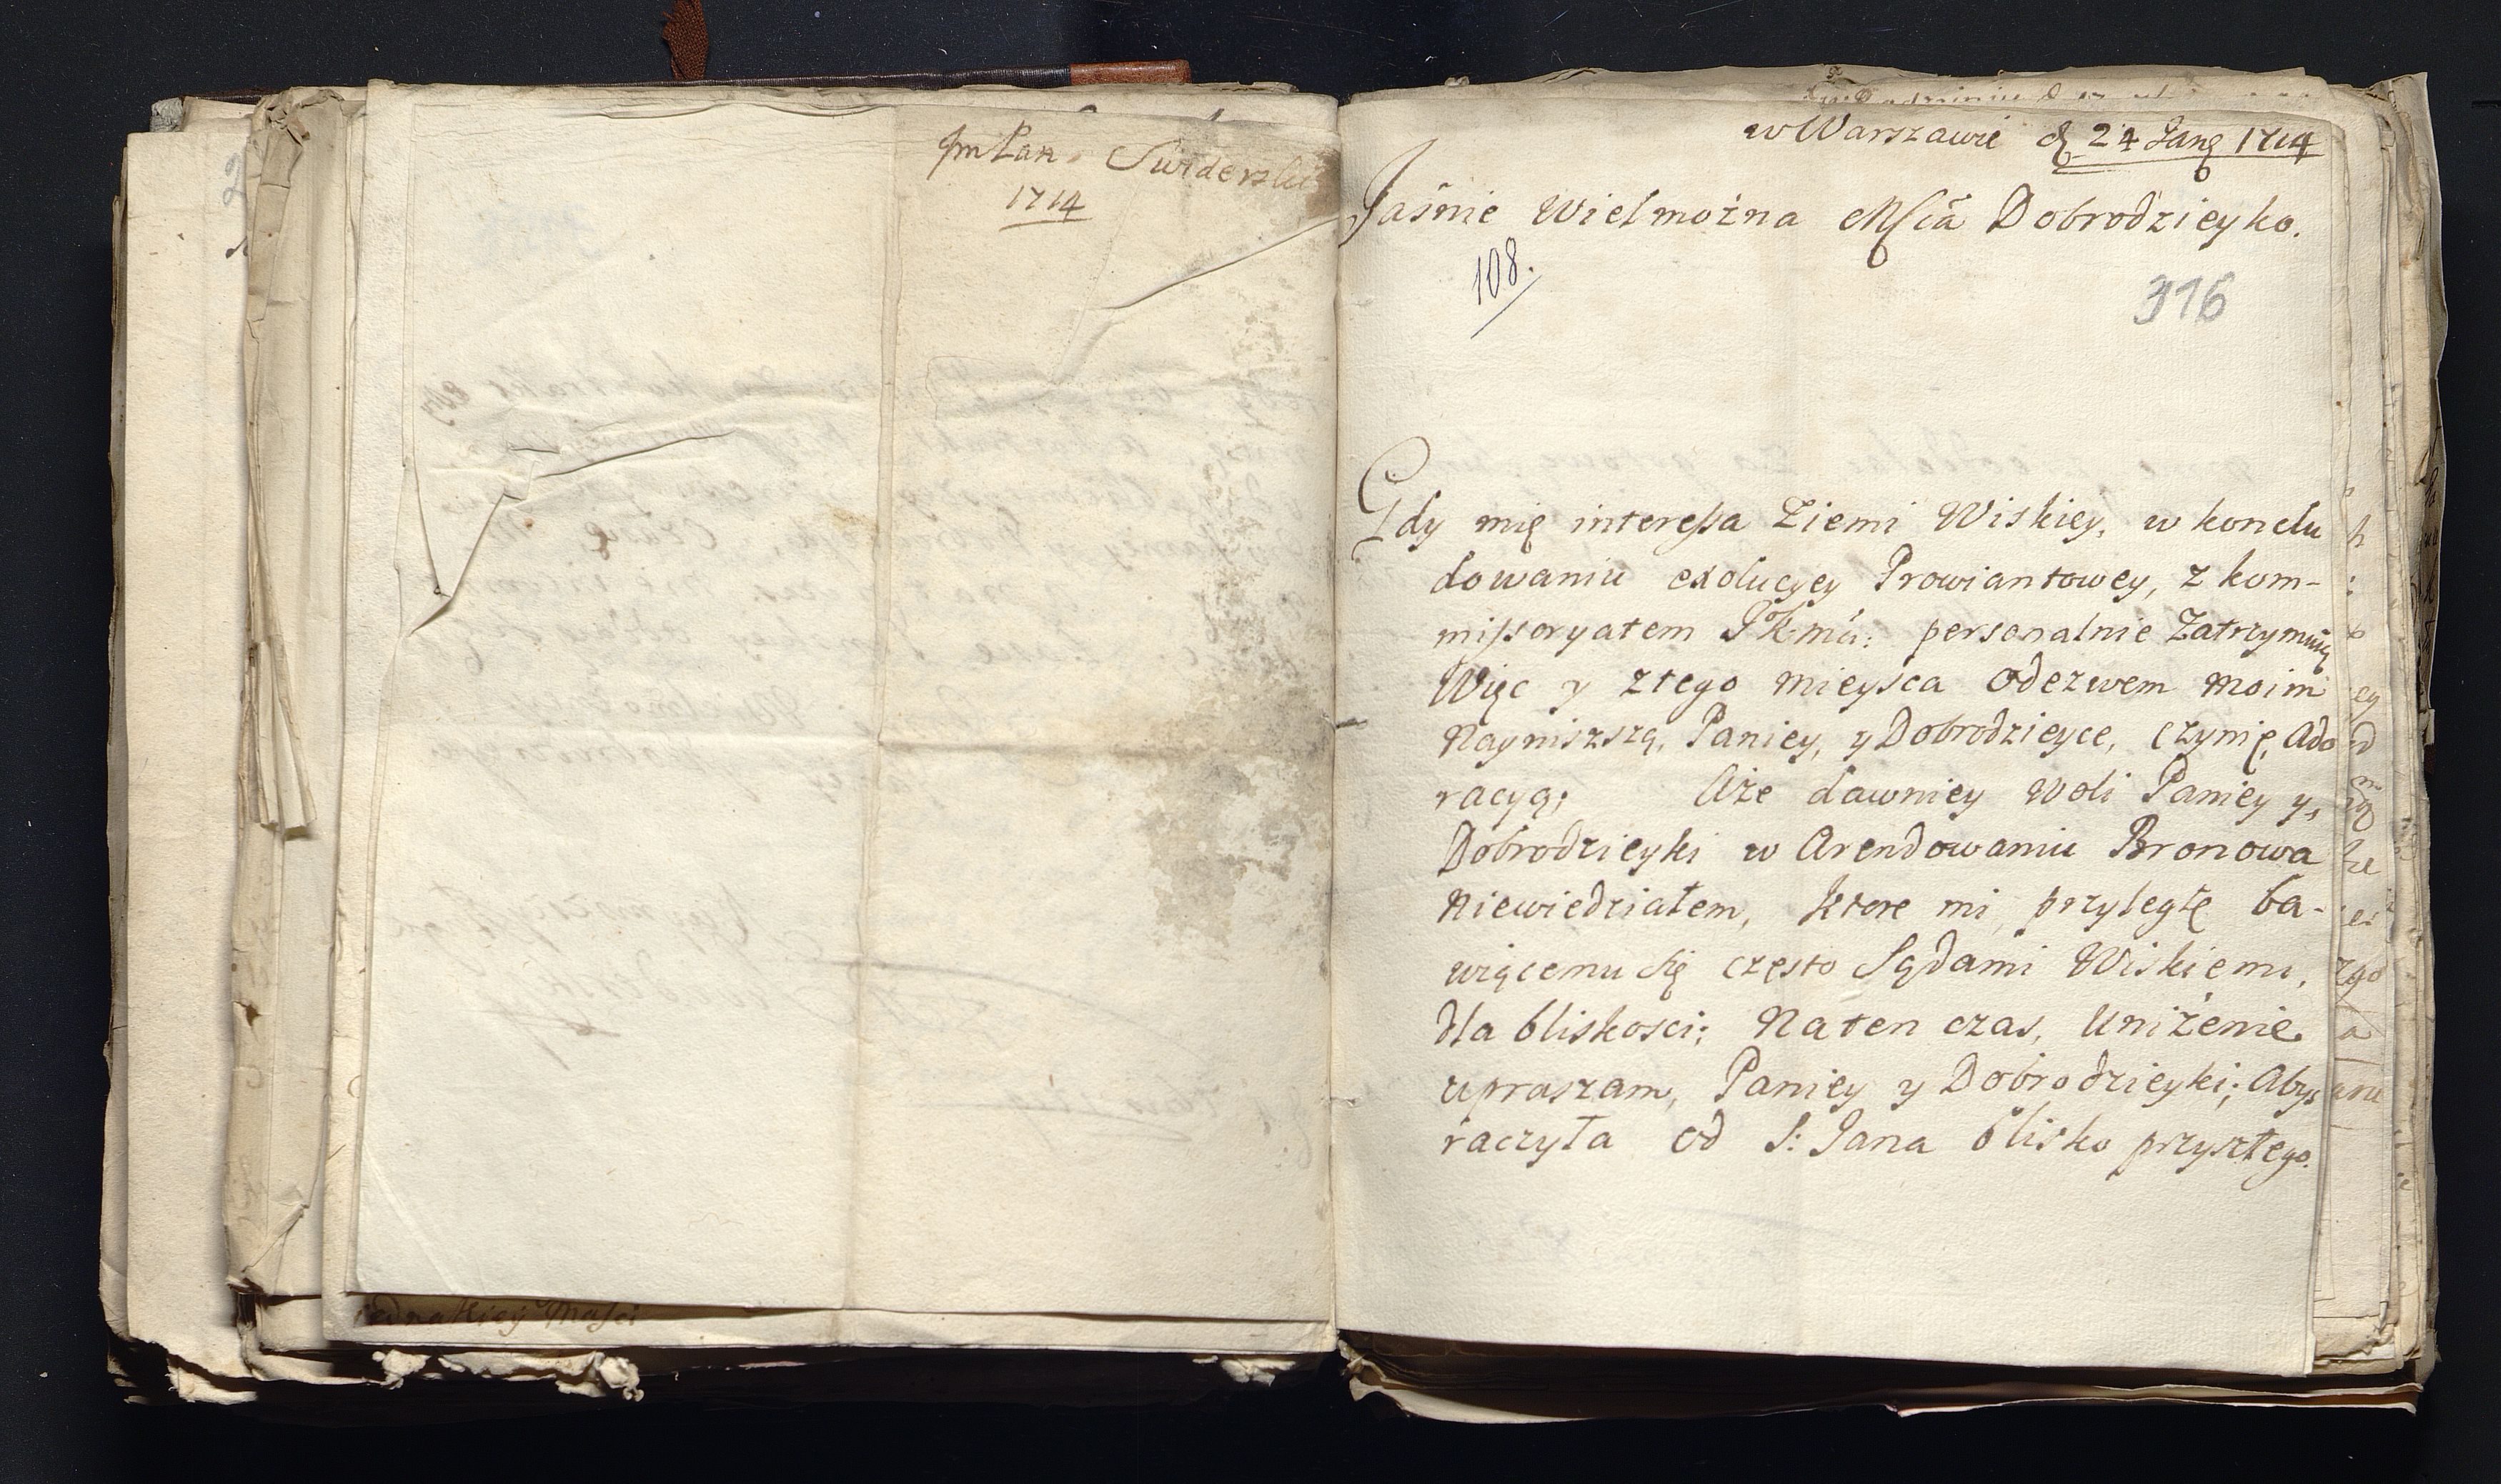 Jm Pan Swiderski
1714
w Warszawie d 24 Jang 1714
Jaśnie Wielmożna Mścia Dobrodzieyko.
108.
316
Gdy mię interessa Ziemi Wiskiey, w konclu
dowaniu exolucyey Prowiantowey, z kom-
missoryatem JKmci: personalnie Zatrzymuią
Więc y ztego mieysca Odezwem moim
Nayniszszą, Paniey, y Dobrodzieyce, czynię, Ado
racyą; Aże dawniey woli Paniey y,
Dobrodzieyki w Arendowaniu Bronowa
Niewiedziałem, ktore mi przyległe ba-
wiącemu się często Sądami Wiskiemi,
dla bliskosci; Naten czas, Uniżenie
upraszam, Paniey y Dobrodzieyki; Abys
raczyła od S: Jana blisko przyszłego.
iednakiey Masci